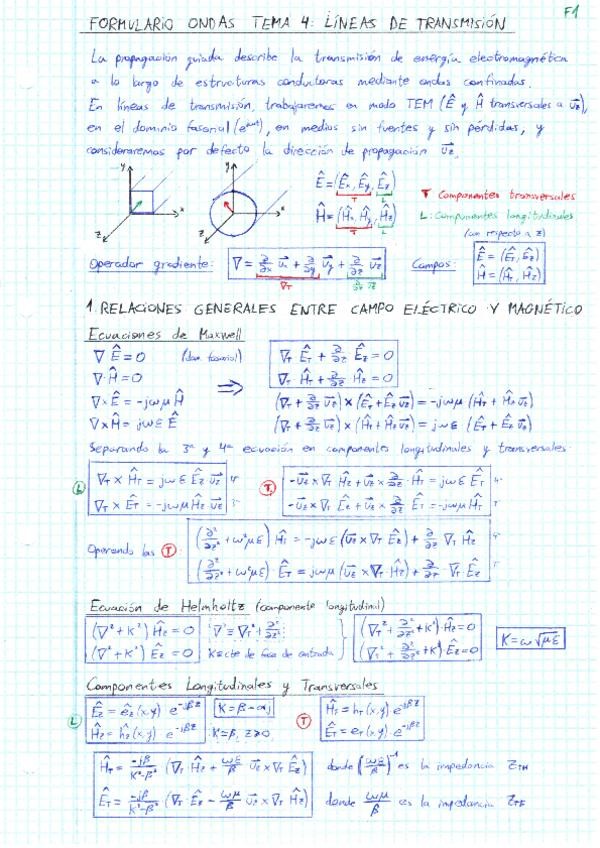 F1
FORMULARIO ONDAS TEMA 4: LÍNEAS DE TRANSMISIÓN
La propagación guiada describe la transmisión de energía electromagnética
a lo largo de estructuras conductoras mediante ondas confinadas.
En líneas de transmisión, trabajaremos en modo TEM (Ê y Ĥ transversales a u⃗z),
en el dominio fasorial (e^jωt), en medios sin fuentes y sin pérdidas, y
consideraremos por defecto la dirección de propagación u⃗z.
y x z y x z
Ê = (Êx, Êy, Êz)
T L
Ĥ = (Ĥx, Ĥy, Ĥz)
T L
T Componentes transversales
L: Componentes longitudinales
(con respecto a z)
Operador gradiente: ∇ = ∂/∂x u⃗x + ∂/∂y u⃗y + ∂/∂z u⃗z
∇T ∂/∂z u⃗z
Campos: Ê = (ÊT, Êz)
Ĥ = (ĤT, Ĥz)
1. RELACIONES GENERALES ENTRE CAMPO ELÉCTRICO Y MAGNÉTICO
Ecuaciones de Maxwell
∇·Ê = 0 (dom. fasorial) ∇T ÊT + ∂/∂z Êz = 0
∇·Ĥ = 0 ⇒ ∇T ĤT + ∂/∂z Ĥz = 0
∇×Ê = -jωμ Ĥ (∇T + ∂/∂z u⃗z) × (ÊT + Êz u⃗z) = -jωμ (ĤT + Ĥz u⃗z)
∇×Ĥ = jωε Ê (∇T + ∂/∂z u⃗z) × (ĤT + Ĥz u⃗z) = jωε (ÊT + Êz u⃗z)
Separando la 3ª y 4ª ecuación en componentes longitudinales y transversales:
L ∇T × ĤT = jωε Êz u⃗z 4ª T -u⃗z × ∇T Ĥz + u⃗z × ∂/∂z ĤT = jωε ÊT 4ª
∇T × ÊT = -jωμ Ĥz u⃗z 3ª -u⃗z × ∇T Êz + u⃗z × ∂/∂z ÊT = -jωμ ĤT 3ª
Operando las T: (∂²/∂z² + ω²με) ĤT = -jωε (u⃗z × ∇T Êz) + ∂/∂z ∇T Ĥz
(∂²/∂z² + ω²με) ÊT = jωμ (u⃗z × ∇T Ĥz) + ∂/∂z ∇T Êz
Ecuación de Helmholtz (componente longitudinal)
(∇² + K²) Ĥz = 0 ∇² = ∇T² + ∂²/∂z² (∇T² + ∂²/∂z² + K²) Ĥz = 0
(∇² + K²) Êz = 0 K = cte de fase de entrada (∇T² + ∂²/∂z² + K²) Êz = 0
K = ω√με
Componentes Longitudinales y Transversales
L Êz = êz (x,y) e^-jβz K = β - αj T ĤT = hT (x,y) e^-jβz
Ĥz = ĥz (x,y) e^-jβz K = β, z≥0 ÊT = eT (x,y) e^-jβz
ĤT = -jβ/(K²-β²) (∇T Ĥz + ωε/β u⃗z × ∇T Êz) donde (ωε/β)⁻¹ es la impedancia ZTM
ÊT = -jβ/(K²-β²) (∇T Êz - ωμ/β u⃗z × ∇T Ĥz) donde ωμ/β es la impedancia ZTE